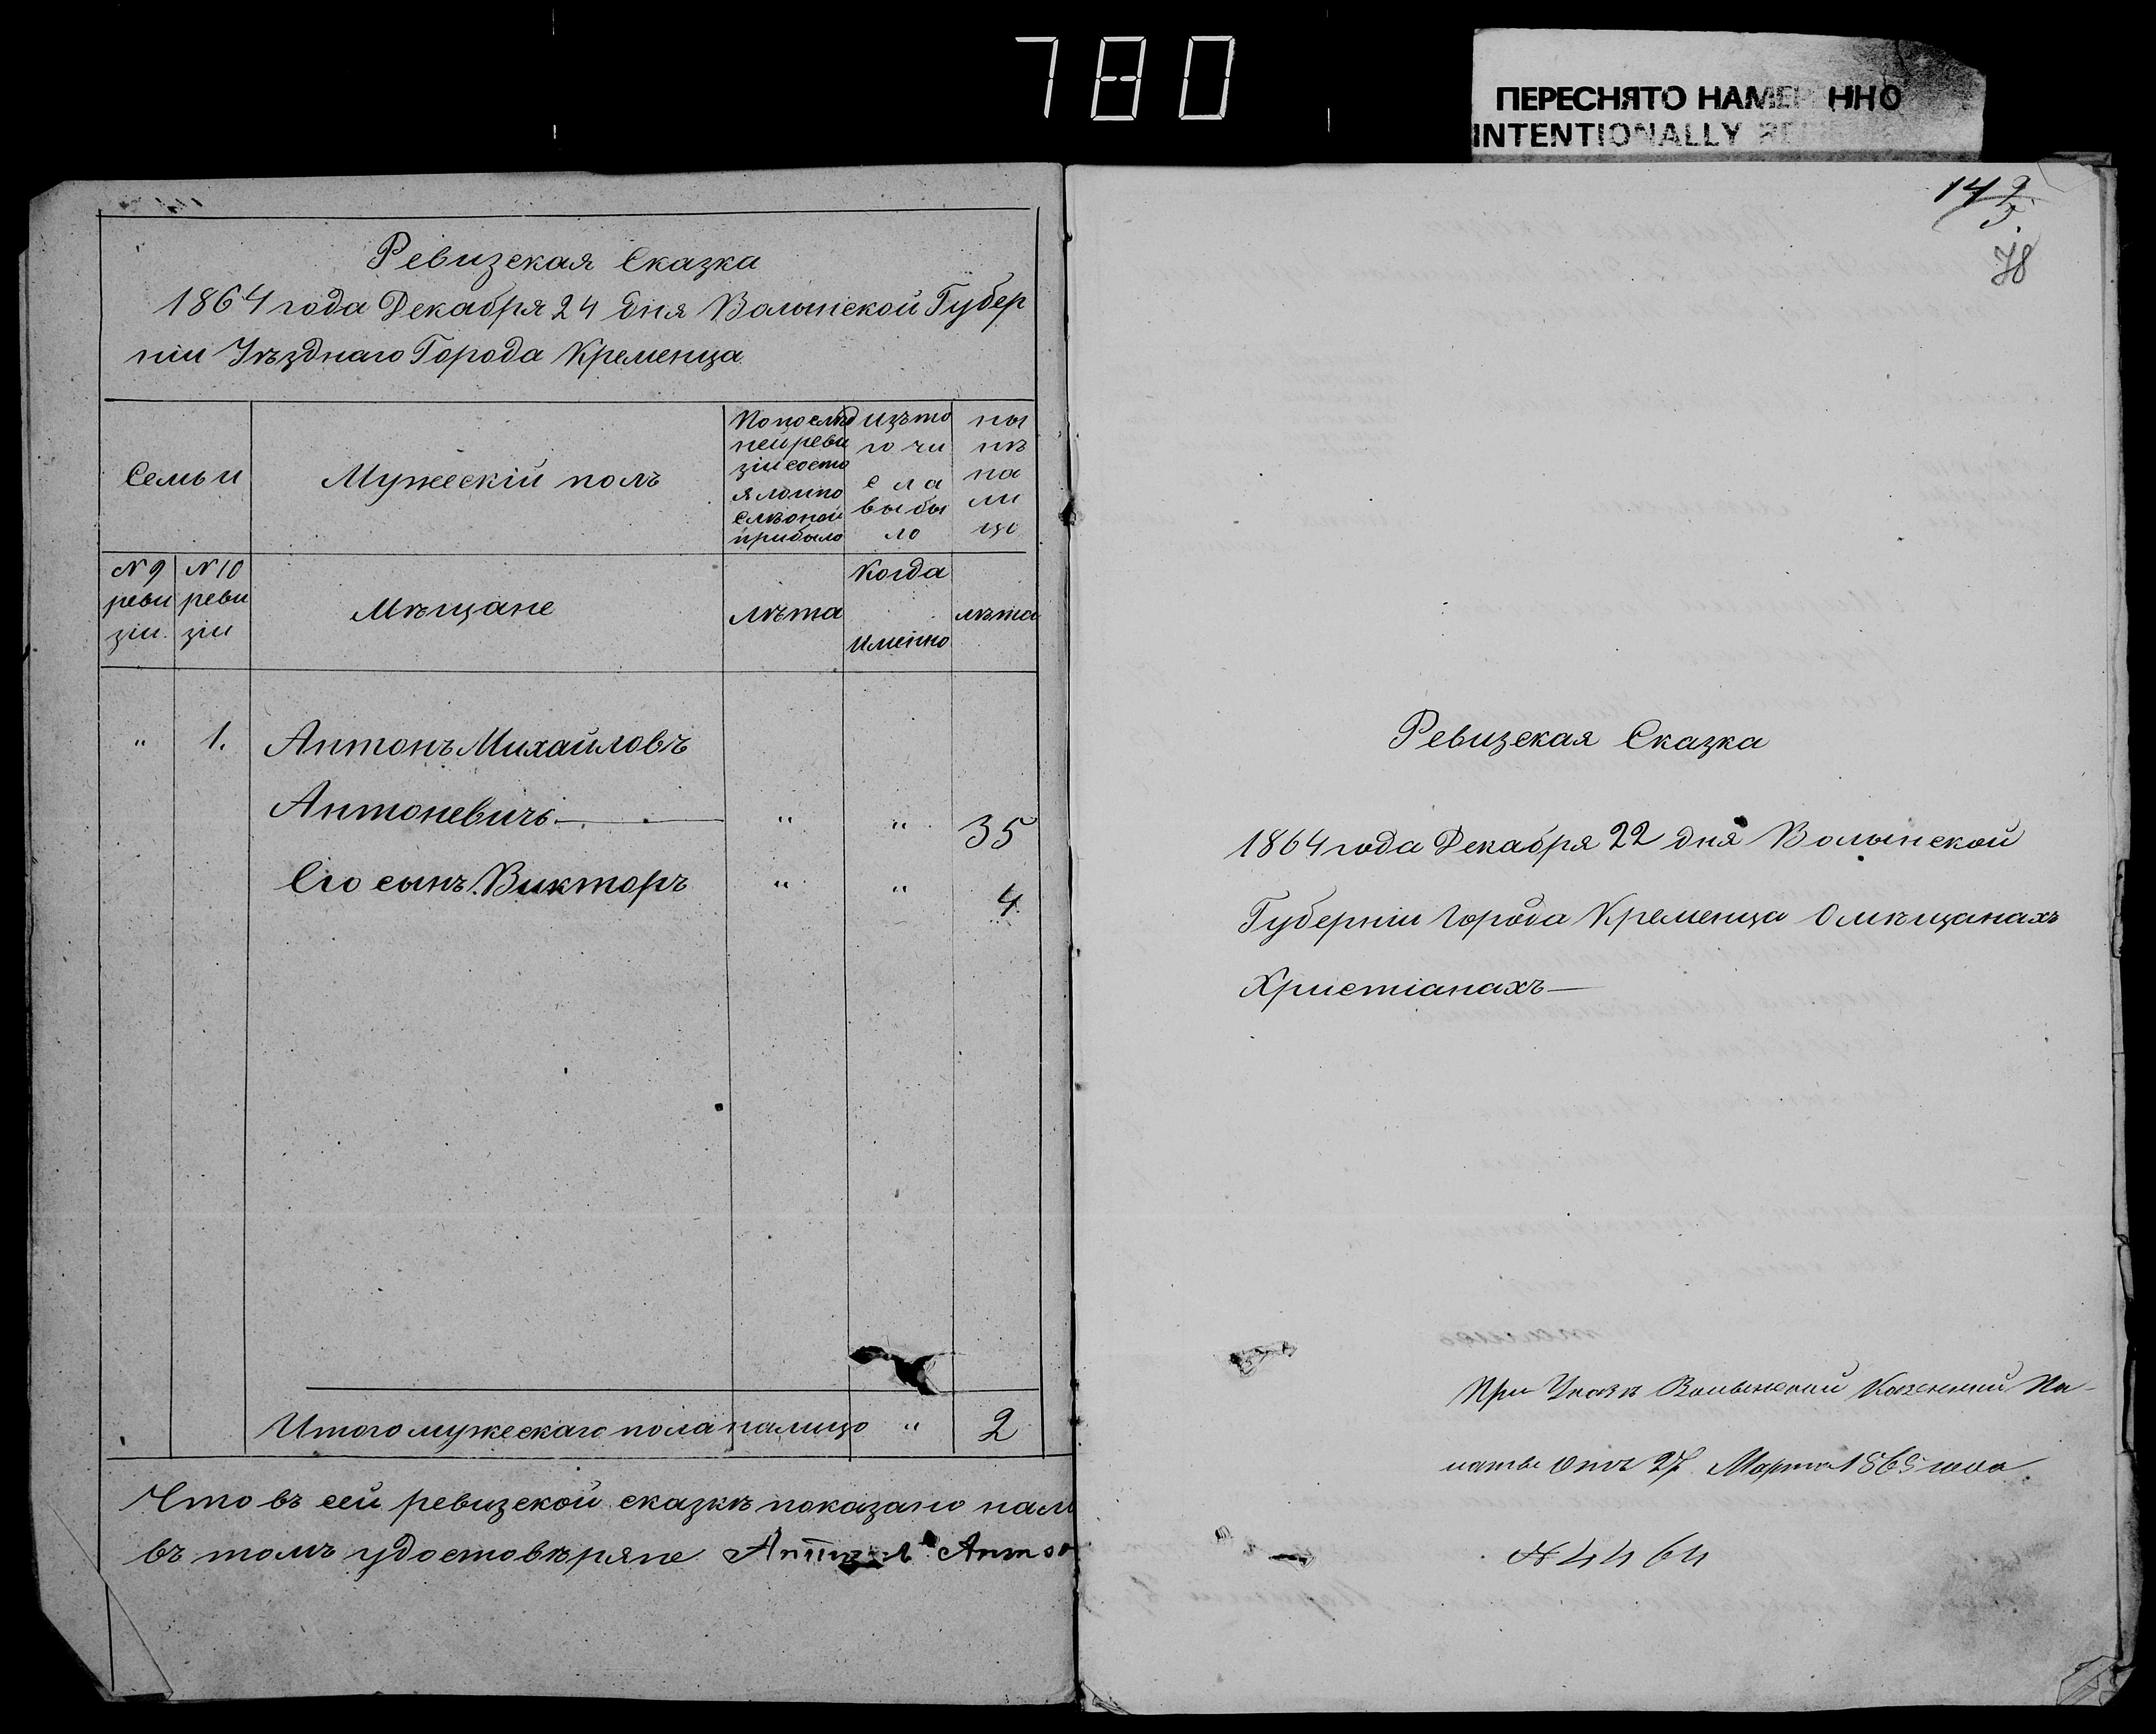 780
ПЕРЕСНЯТО НАМЕР ННО
INTENTIONALLY
Ревизская Сказка
1864 года Декабря 24 дня Волынской Губер
ніи Уѣзднаго Города Кременца
Семьи
Мужескій полъ
По послѣд
ней реви
зіи состо
яло и по
слѣ оной
прибыло
изъ то
го чи
сла
выбы
ло
ны
нѣ
на
ли
цо
N 9
реви
зіи.
N 10
реви
зіи
Мѣщане
лѣта
Когда
именно
лѣта
" 1. Антонъ Михайловъ
Антоневичъ " " 35
Его сынъ Викторъ " " 4
Итого мужескаго пола налицо " 2
Что въ сей ревизской сказкѣ показано нали
въ томъ удостовѣряне Анто
14
78
Ревизская Сказка
1864 года Декабря 22 дня Волынской
Губерніи Города Кременца О мѣщанахъ
Христіанахъ—
При Указѣ Волынской Казенной Па-
латы отъ 27 Марта 1865 года
N 4464